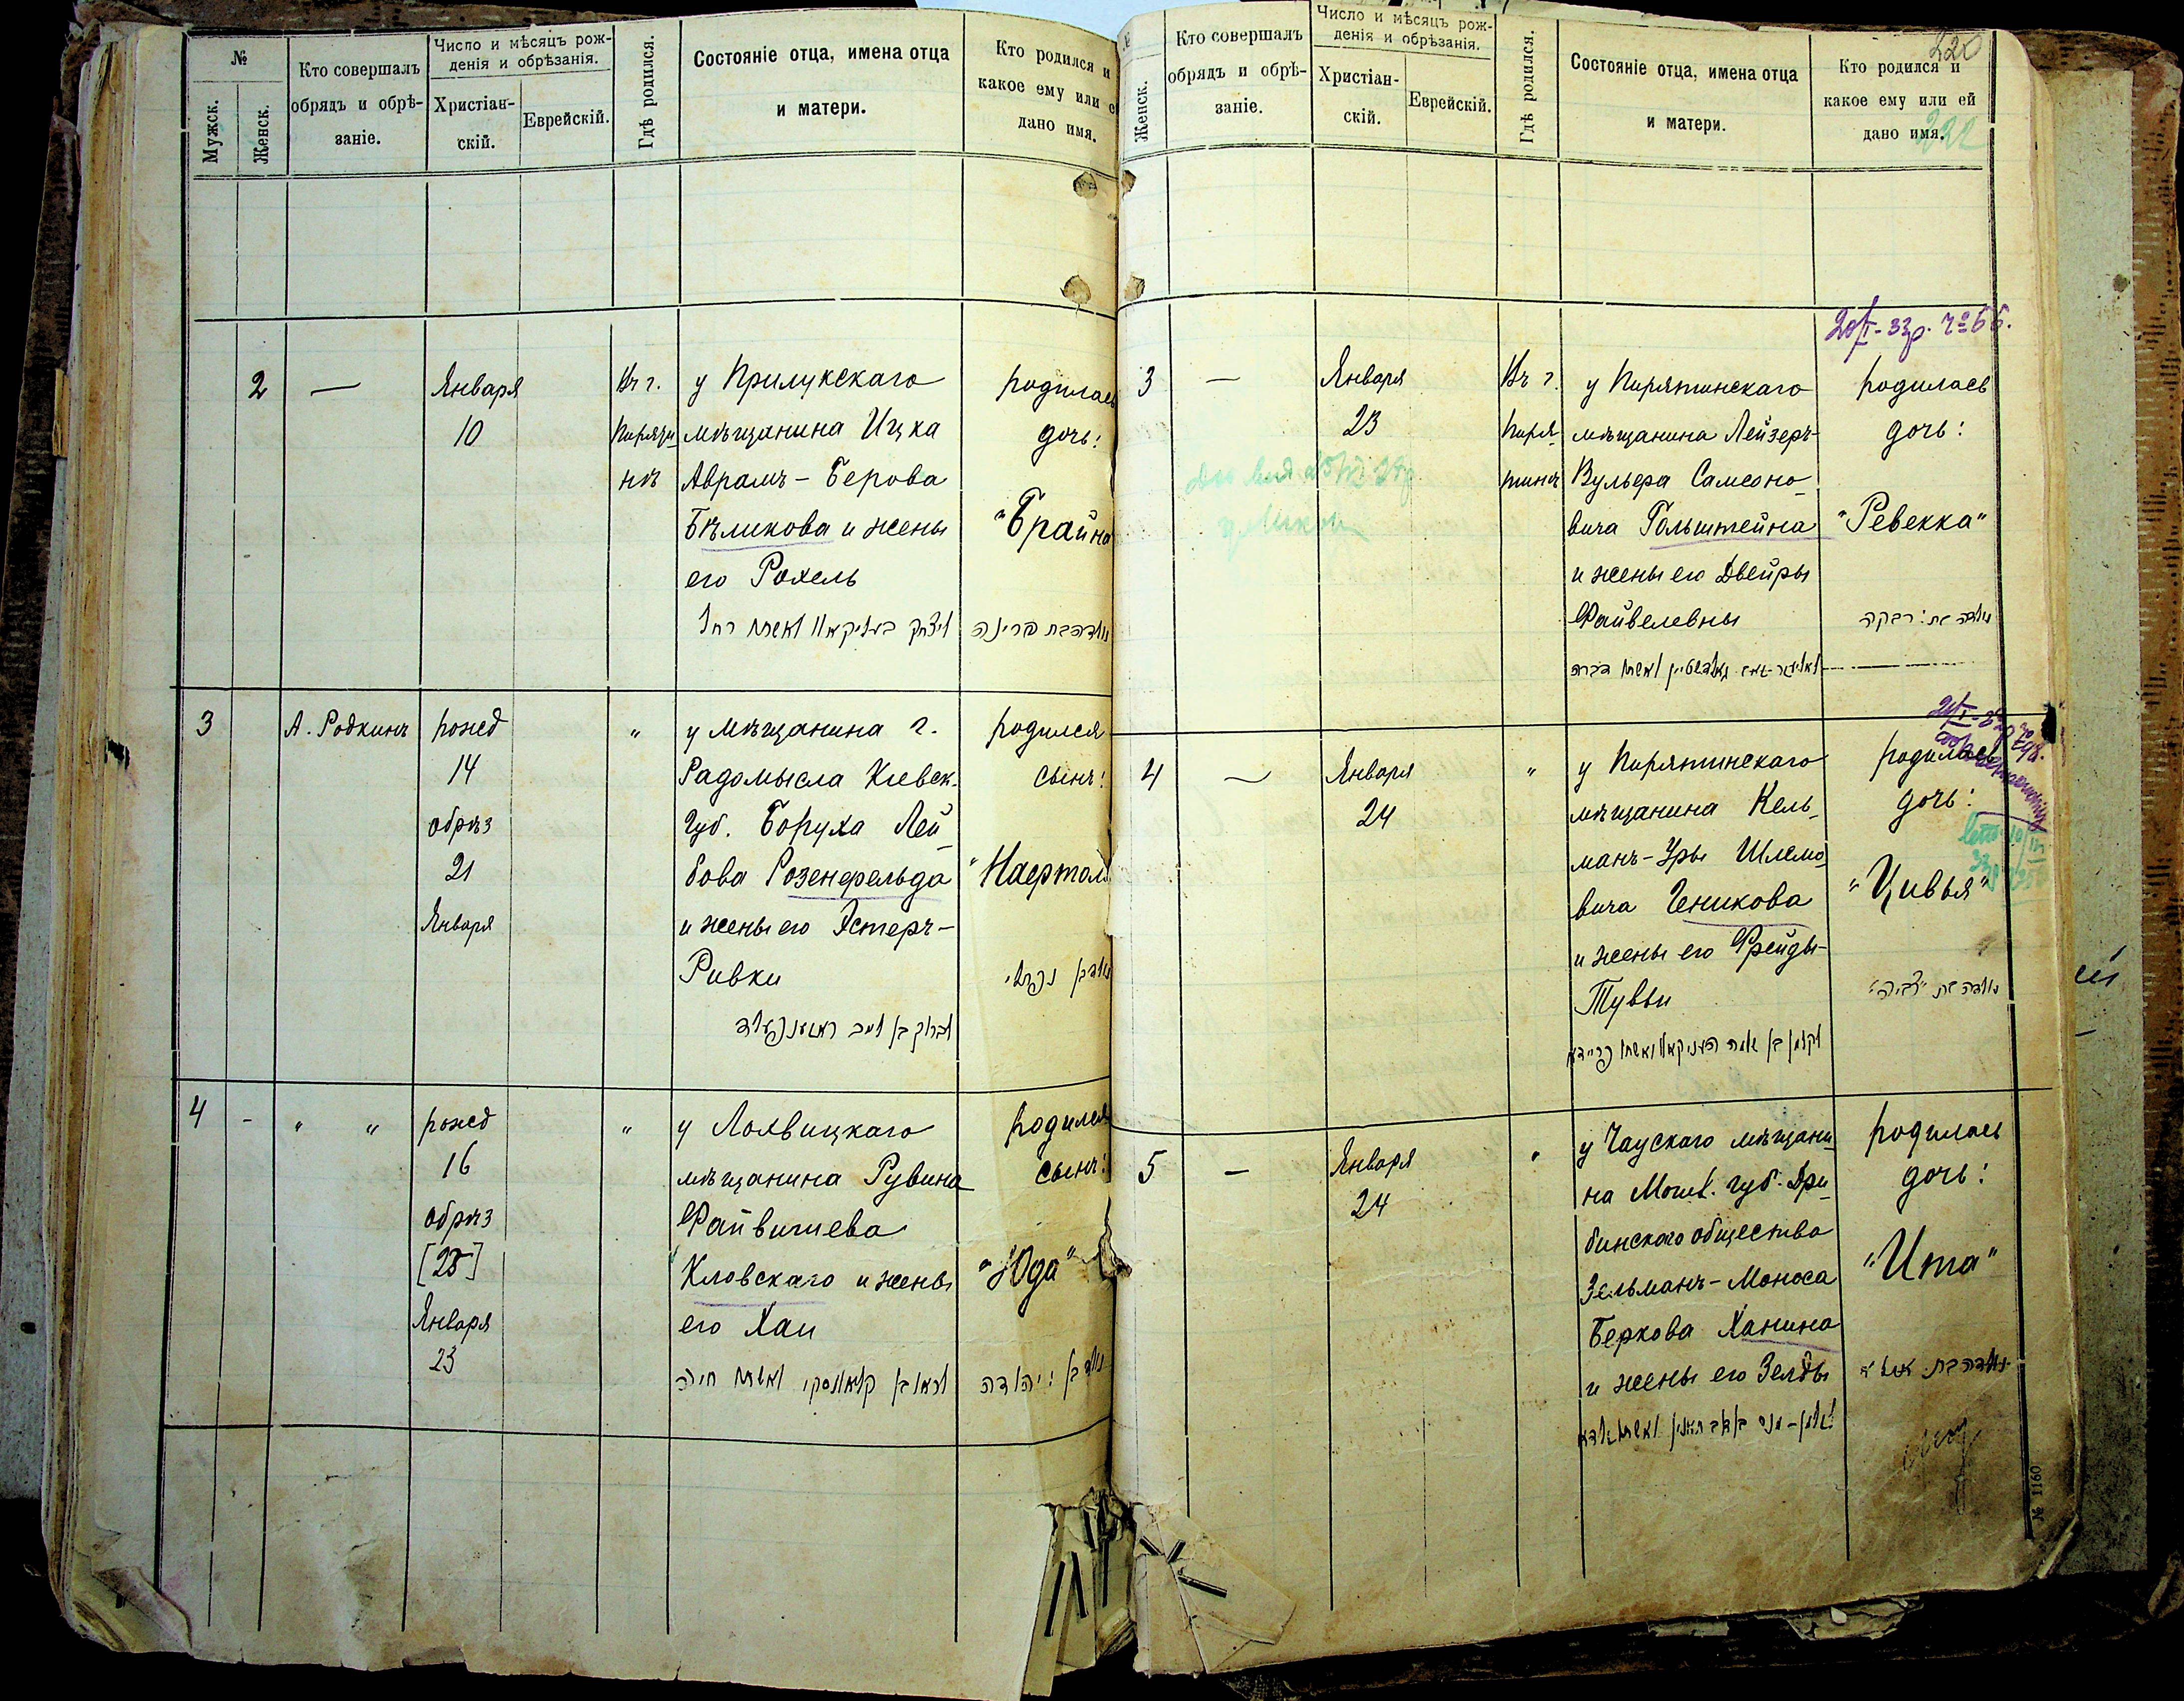 №
Мужск.
Женск.
Кто совершалъ
обрядъ и обрѣ-
заніе.
Число и мѣсяцъ рож-
денія и обрѣзанія.
Христіан-
скій.
Еврейскій.
Гдѣ родился.
Состояніе отца, имена отца
и матери.
Кто родился и
какое ему или ей
дано имя.
2
—
Января
10
Въ г.
Пиряти
нѣ
у Прилукскаго
мѣщанина Ицка
Аврамъ-Берова
Бѣликова и жены
его Рохель
родилась
дочь:
"Брайна
3
А. Родкинъ
рожд
14
обрѣз
21
Января
"
у мѣщанина г.
Радомысла Кіевск.
губ. Боруха Лей
бова Розенфельда
и жены его Эстеръ-
Ривки
родился
сынъ:
"Нафтоль
4
-
" "
рожд
16
обрѣз
Января
23
"
у Лохвицкаго
мѣщанина Рувина
Файвишева
Кловскаго и жены
его Хаи
родился
сынъ:
"Юда"
ראובן קלאווסקי ואשתו חיה
יהודה
Женск.
Кто совершалъ
обрядъ и обрѣ-
заніе.
Число и мѣсяцъ рож-
денія и обрѣзанія.
Христіан-
скій.
Еврейскій.
Гдѣ родился.
Состояніе отца, имена отца
и матери.
220
Кто родился и
какое ему или ей
дано имя.
222
3
—
Января
23
Въ г.
Пиря
тинѣ
у Пирятинскаго
мѣщанина Лейзеръ-
Вульфа Самсоно
вича Гольштейна
и жены его Двейры
Файвелевны
родилась
дочь:
"Ревекка"
רבקה
4
—
Января
24
"
у Пирятинскаго
мѣщанина Кель
манъ-Уры Шлемо
вича Ченикова
и жены его Фрейды-
Тувьи
родилась
дочь:
"Цивья"
5
—
Января
24
"
у Чаускаго мѣщани
на Могил. губ. Дри
бинскаго общества
Зельманъ-Моноса
Беркова Ханина
и жены его Зелды
родилась
дочь:
"Ита"
№ 1160